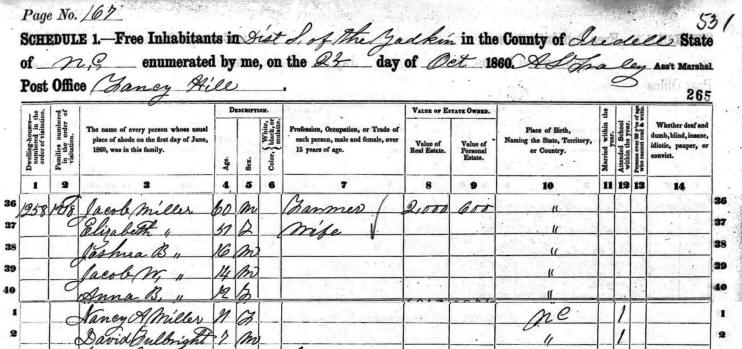 Page No. 167
531
SCHEDULE 1.—Free Inhabitants in Dist S. of the Yadkin in the County of Iredell State
of N.C. enumerated by me, on the 22 day of Oct 1860. Ass't Marshal
Post Office Fancy Hill.
265
Dwelling-houses— numbered in the order of visitation.
Families numbered in the order of visitation.
The name of every person whose usual place of abode on the first day of June, 1860, was in this family.
DESCRIPTION.
Age.
Sex.
Color, White, black, or mulatto.
Profession, Occupation, or Trade of each person, male and female, over 15 years of age.
VALUE OF ESTATE OWNED.
Value of Real Estate.
Value of Personal Estate.
Place of Birth, Naming the State, Territory, or Country.
Married within the year.
Attended School within the year.
Persons over 20 y'rs of age who cannot read & write.
Whether deaf and dumb, blind, insane, idiotic, pauper, or convict.
1 2 3 4 5 6 7 8 9 10 11 12 13 14
36 1258 Jacob Miller 60 m Farmer 2,000 600 " 36
37 Elizabeth " 51 f Wife " 37
38 Joshua B " 16 m " 38
39 Jacob W, " 14 m " 39
40 Anna B. " 12 f " 40
1 Nancy A Miller 11 f NC 1 1
2 David Fulbright 7 m " 1 2